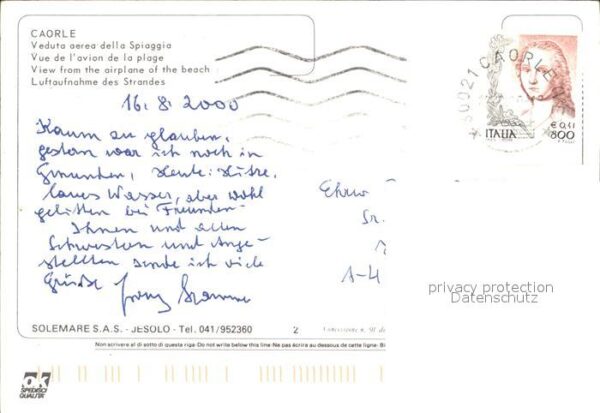 CAORLE
Veduta aerea della Spiaggia
Vue de l'avion de la plage
View from the airplane of the beach
Luftaufnahme des Strandes
30021 CAORLE VE
ITALIA
€ 0,41
800
16.8.2000
Kaum zu glauben,
gestern war ich noch in
Gmunden, Heute: Hitze,
laues Wasser, aber wohl
gelitten bei Freunden
Ihnen und allen
Schwestern und Ange-
stellten sende ich viele
Grüße
Ehrw
Sr.
A-4
privacy protection
Datenschutz
SOLEMARE S.A.S. - JESOLO - Tel. 041/952360
2
Non scrivere al di sotto di questa riga - Do not write below this line - Ne pas écrire au dessous de cette ligne -
ok
SPEDISCI
QUALITÀ